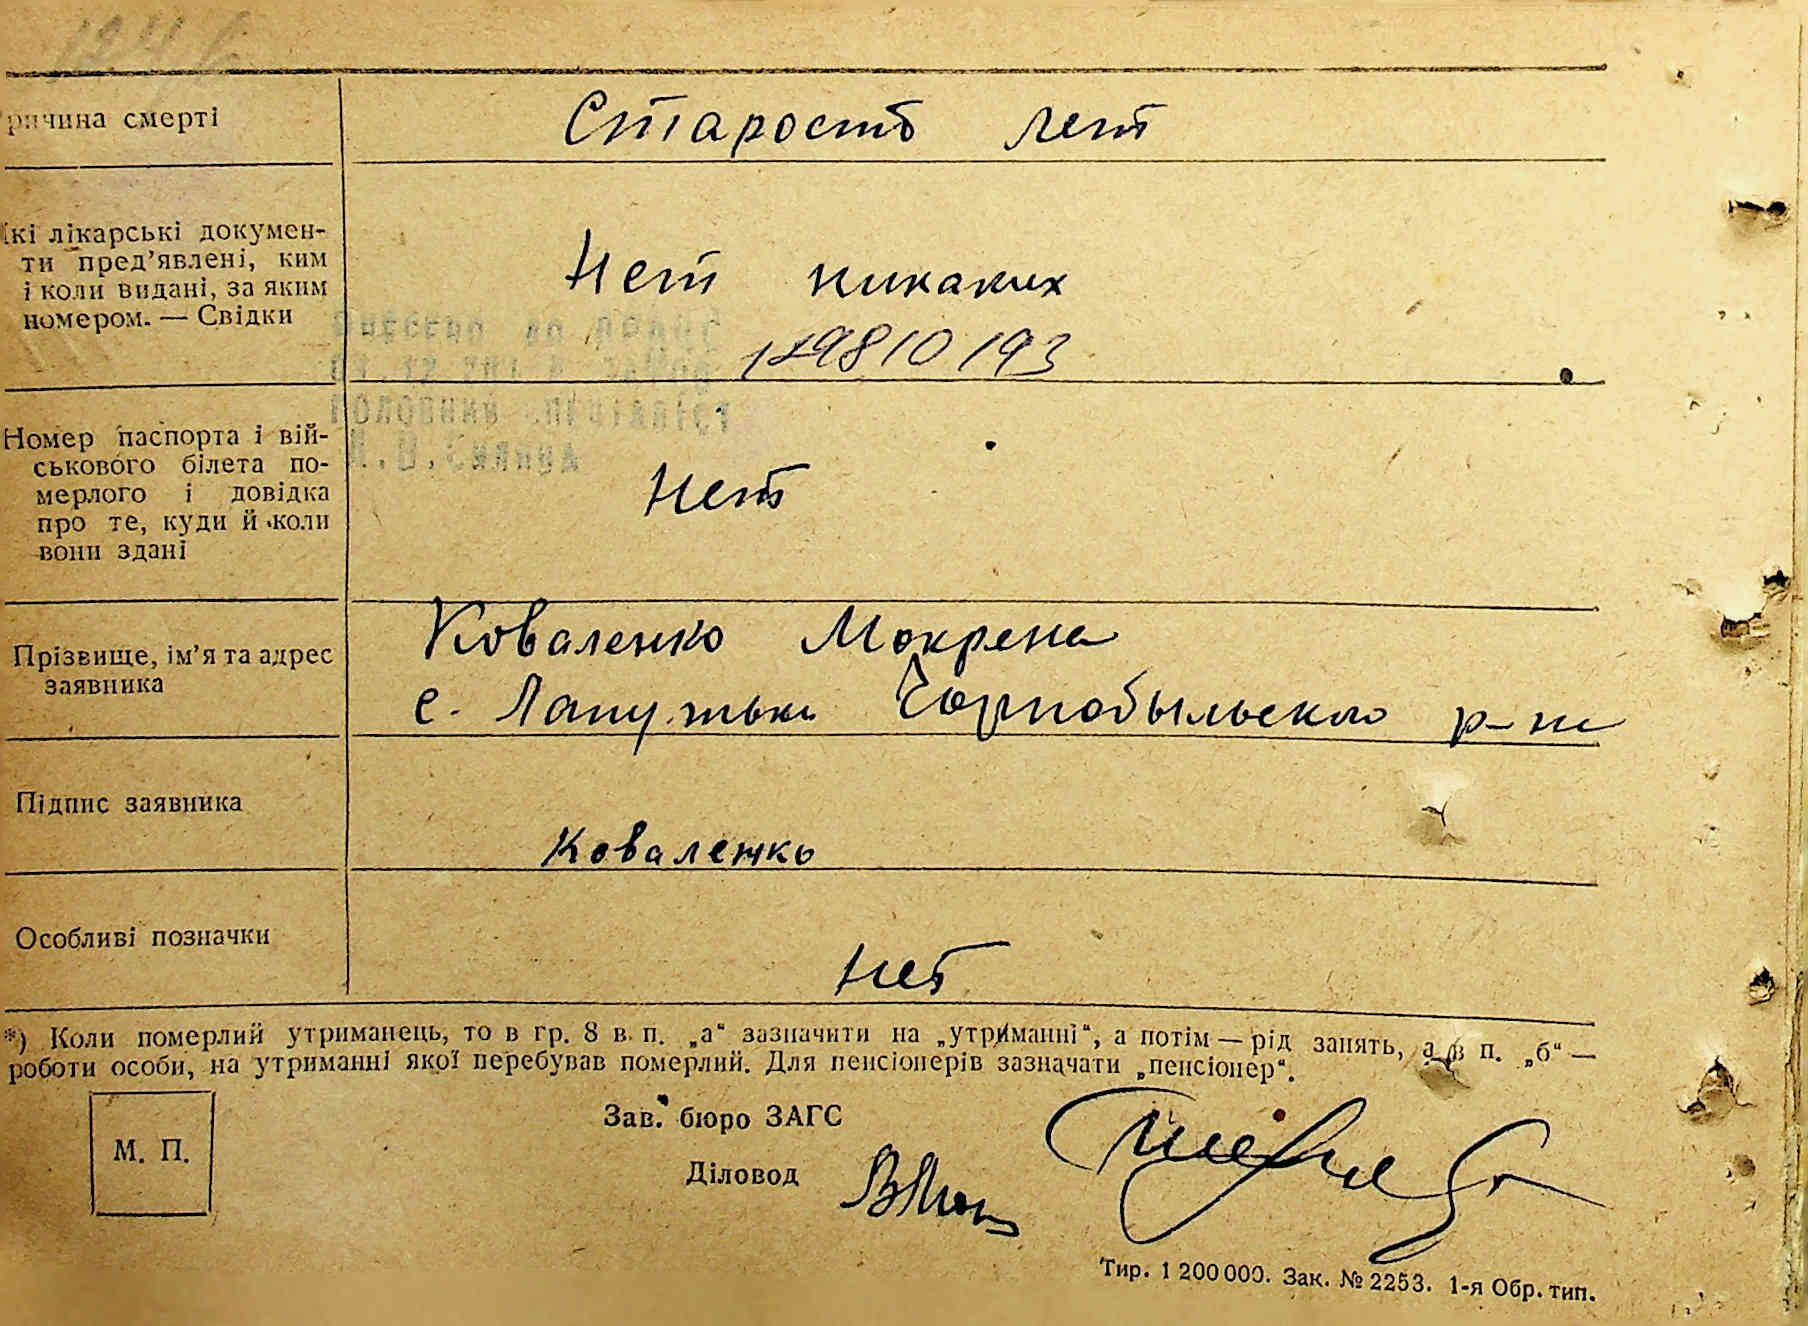 ричина смерті
Старость лет
кі лікарські докумен-
ти пред’явлені, ким
і коли видані, за яким
номером. — Свідки
Нет никаких
Номер паспорта і вій-
ськового білета по-
мерлого і довідка
про те, куди й коли
вони здані
Нет
Прізвище, ім’я та адрес
заявника
Коваленко Мокрена
с. Чорнобыльского р-на
Підпис заявника
Коваленко
Особливі позначки
Нет
*) Коли померлий утриманець, то в гр. 8 в п. „а“ зазначити на „утриманні“, а потім — рід занять, а в п. „б“ —
роботи особи, на утриманні якої перебував померлий. Для пенсіонерів зазначати „пенсіонер“.
М. П.
Зав. бюро ЗАГС
Діловод
Тир. 1 200 000. Зак. № 2253. 1-я Обр. тип.